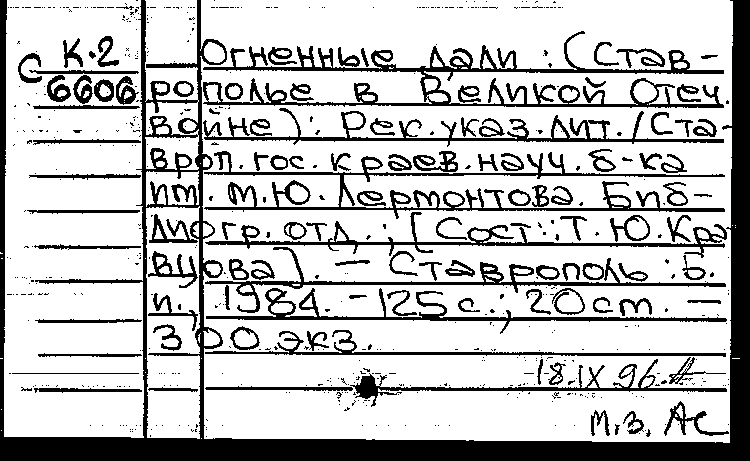 С К.2
6606
Огненные дали : (Став-
рополье в Великой Отеч.
войне) : Рек. указ. лит. / Ста-
вроп. гос. краев. науч. б-ка
им. М.Ю. Лермонтова. Биб-
лиогр. отд. ; [Сост.: Т.Ю. Кра
вцова]. — Ставрополь : Б.
и., 1984. - 125 с. ; 20 cm. —
300 экз.
18.IX 96.
м.з. АС